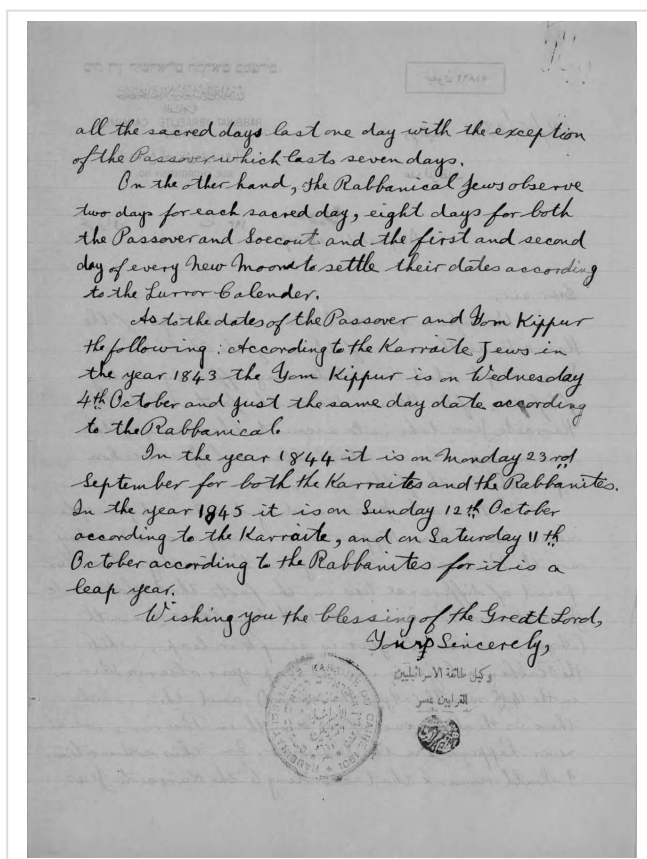 all the sacred days last one day with the exception
of the Passover which lasts seven days.
On the other hand, the Rabbanical Jews observe
two days for each sacred day, eight days for both
the Passover and Soecout and the first and second
day of every New Moon to settle their dates according
to the Lurror Calender.
As to the dates of the Passover and Yom Kippur
the following: According to the Karraite Jews in
the year 1843 the Yom Kippur is on Wednesday
4th October and just the same day date according
to the Rabbanical.
In the year 1844 it is on Monday 23rd
September for both the Karraites and the Rabbanites.
In the year 1845 it is on Sunday 12th October
according to the Karraite, and on Saturday 11th
October according to the Rabbanites for it is a
leap year.
Wishing you the blessing of the Great Lord,
Yours Sincerely,
وكيل طائفة الاسرائيليين
القرايين بمصر
KARAIME DU CAIRE 1901